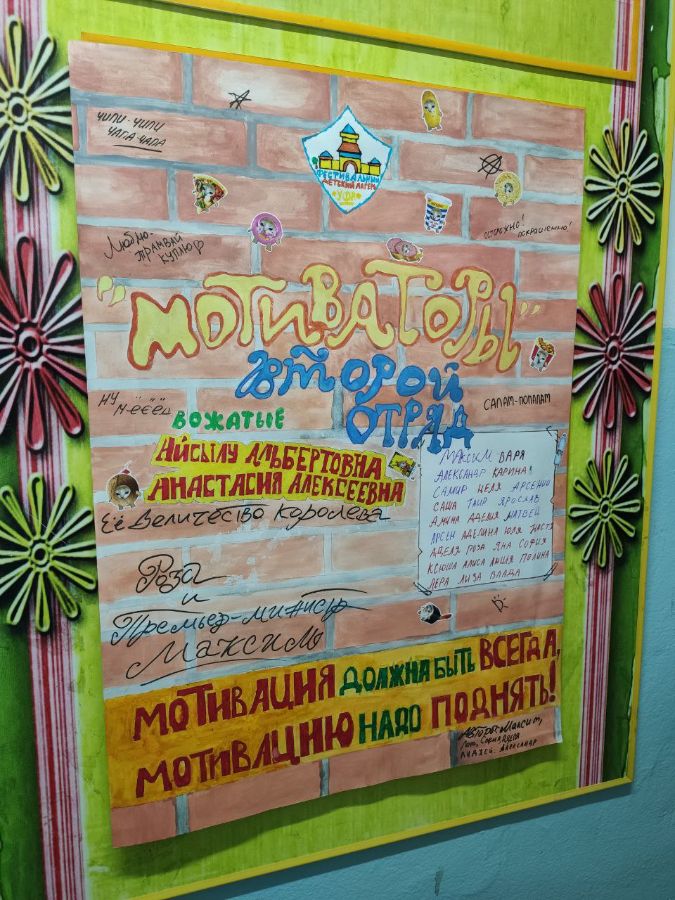 ЧИПИ-ЧИПИ
ЧАПА-ЧАПА
ФЕСТИВАЛЬНЫЙ
ДЕТСКИЙ ЛАГЕРЬ
Люблю
ТРАМВАЙ
КУПЛЮ
ОСТОРОЖНО!
ПОКРАШЕННО!
"МОТИВАТОРЫ"
ВТОРОЙ
ОТРЯД
НУ
М-ЕЁЁЁЦ
САЛАМ-ПОПАЛАМ
ВОЖАТЫЕ
АЙСЫЛУ АЛЬБЕРТОВНА
АНАСТАСИЯ АЛЕКСЕЕВНА
Её Величество королева
Роза
и
Премьер-министр
Максим
МАКСИМ ВАРЯ
АЛЕКСАНДР КАРИНА
САМИР НЕЛЯ АРСЕНИЙ
САША ТАИР ЯРОСЛАВ
АМИНА АДЕЛИЯ МАТВЕЙ
АРСЕН АДЕЛИНА ЮЛЯ НАСТЯ
АДЕЛЯ РОЗА ЯНА СОФИЯ
КСЮША АЛИСА ПОЛИНА
ЛЕРА ЛИЗА ВЛАДА
МОТИВАЦИЯ ДОЛЖНА БЫТЬ ВСЕГДА,
МОТИВАЦИЮ НАДО ПОДНЯТЬ!
Авторы: Максим,
СОФИЯ
АЛЕКСАНДР